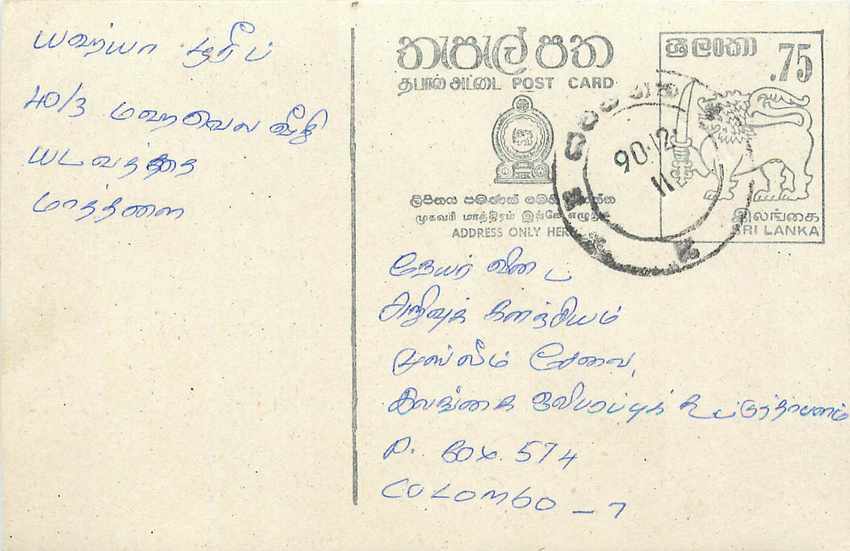 யஹ்யா ஷரீப்
40/3 மஹவெல வீதி
யடவத்தை
மாத்தளை
තැපැල් පත
தபால் அட்டை POST CARD
ශ්‍රී ලංකා
.75
90.12
11
ලිපිනය පමණක්
முகவரி மாத்திரம் இங்கே எழுதுக
ADDRESS ONLY HERE
இலங்கை
SRI LANKA
நேயர் விடை
அறிவுக் களஞ்சியம்
முஸ்லிம் சேவை,
இலங்கை ஒலிபரப்புக் கூட்டுத்தாபனம்
P. Box. 574
COLOMBO - 7